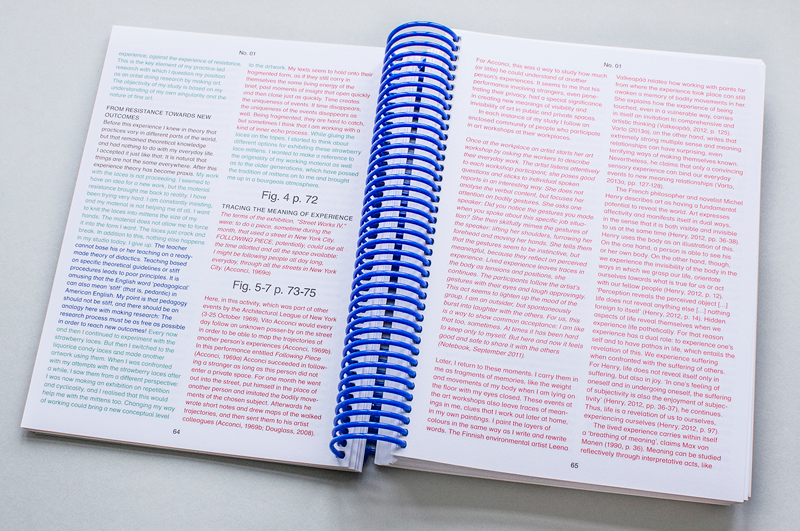 No. 01
experience, against the experience of resistance.
This is the key element of my practice-led
research with which I question my position
as an artist doing research by making art.
The objectivity of my study is based on my
understanding of my own singularity and the
nature of fine art.
FROM RESISTANCE TOWARDS NEW
OUTCOMES
Before this experience I knew in theory that
practices vary in different parts of the world,
but that remained theoretical knowledge
and had nothing to do with my everyday life.
I accepted it just like that. It is natural that
things are not the same everywhere. After this
experience theory has become praxis. My work
with the laces is not proceeding. I seemed to
have an idea for a new work, but the material
resistance brought me back to reality. I have
been trying very hard. I am constantly insisting,
and my material is not helping me at all. I want
to knit the laces into mittens the size of my
hands. The material does not allow me to force
it into the form I want. The laces just crack and
break. In addition to this, nothing else happens
in my studio today. I give up. The teacher
cannot base his or her teaching on a ready-
made theory of didactics. Teaching based
on specific theoretical guidelines or stiff
procedures leads to poor principles. It is
amusing that the English word 'pedagogical'
can also mean 'stiff' (that is, pedantic) in
American English. My point is that pedagogy
should not be stiff, and there should be an
analogy here with making research: The
research process must be as free as possible
in order to reach new outcomes! Every now
and then I continued to experiment with the
strawberry laces. But then I switched to the
liquorice candy laces and made another
artwork using them. When I was confronted
with my attempts with the strawberry laces after
a while, I saw them from a different perspective:
I was now making an exhibition on repetition
and cyclicality, and I realised that this would
help me with the mittens too. Changing my way
of working could bring a new conceptual level
to the artwork. My texts seem to hold onto their
fragmented form, as if they still carry in
themselves the same living energy of the
brief, past moments of insight that open quickly
and then close just as quickly. Time creates
the uniqueness of events: If time disappears,
the uniqueness of the events disappears as
well. Being fragmented, they are hard to catch,
but sometimes I think that I am working with a
kind of inner echo process. While gluing the
laces on the tapes, I started to think about
different options for exhibiting these strawberry
lace mittens. I wanted to make a reference to
the originality of my working material as well
as to the older generations, which have passed
the tradition of mittens on to me and brought
me up in a bourgeois atmosphere.
Fig. 4 p. 72
TRACING THE MEANING OF EXPERIENCE
The terms of the exhibition, "Street Works IV,"
were to do a piece, sometime during the
month, that used a street in New York City.
FOLLOWING PIECE, potentially, could use all
the time allotted and all the space available:
I might be following people all day long,
everyday, through all the streets in New York
City. (Acconci, 1969a)
Fig. 5-7 p. 73-75
Here, in this activity, which was part of other
events by the Architectural League of New York
(3-25 October 1969), Vito Acconci would every
day follow an unknown passer-by on the street
in order to be able to map the trajectories of
another person's experiences (Acconci, 1969b).
In his performance entitled Following Piece
(Acconci, 1969a) Acconci succeeded in follow-
ing a stranger as long as this person did not
enter a private space. For one month he went
out into the street, put himself in the place of
another person and imitated the bodily move-
ments of the chosen subject. Afterwards he
wrote short notes and drew maps of the walked
trajectories, and then sent them to his artist
colleagues (Acconci, 1969b; Douglass, 2008).
64
No. 01
For Acconci, this was a way to study how much
(or little) he could understand of another
person's experiences. It seems to me that his
performance involving strangers, even pene-
trating their privacy, had a special significance
in creating new meanings of visibility and
invisibility of art in public and private spaces.
In each instance of my study I follow an
enclosed community of people who participate
in art workshops at their workplaces.
Once at the workplace an artist starts her art
workshop by asking the workers to describe
their everyday work. The artist listens attentively
to each workshop participant; she poses good
questions and stops at individual spoken
words in an interesting way. She does not
analyse the verbal content, but focuses her
attention on bodily gestures. She asks one
speaker: Did you notice the gestures you made
when you spoke about this specific job situa-
tion? She then skilfully mimes the gestures of
the speaker: lifting her shoulders, furrowing her
forehead, moving her hands. She tells them
that the gestures seem to be instinctive, but
they are meaningful, because they perform the
experience. Lived experience leaves traces in
our bodily memories and postures. The session
continues. The participants follow the artist's
gestures with their eyes and laugh approvingly.
This act seems to lighten up the mood of the
group. I am an outsider, but simultaneously
burst into laughter with the others. For us, this
is a way to show common acceptance: I am like
that too, sometimes. At times it has been hard
to keep only to myself. But here and now it feels
good and safe to share it with the others
(Notebook, September 2011).
Later, I return to these moments. I carry them in
me as fragments of memories, like the weight
and movements of my body when I am lying on
the floor with my eyes closed. These events at
the art workshops also leave traces of mean-
ings in me, clues that I work out later at home,
in my own paintings. I paint the layers of
colours in the same way as I write and rewrite
words. The Finnish environmental artist Leena
Valkeapää relates how working with points far
from where the experience took place can still
retain a memory of bodily movements in her.
She explains how the experience of being
touched, even in a vulnerable way, carries
in itself an invitation to comprehensive and
artistic thinking (Valkeapää, 2012, p. 125).
Varto (2013a), on the other hand, writes that
extremely strong multiple sense experiences
can have surprising, even
terrifying ways of making themselves known.
Nevertheless, it is fascinating that a convincing
sensory experience can bind our everyday
events to new meaning relationships (Varto,
2013a, pp. 127-128).
The French philosopher and novelist Michel
Henry describes art as having a fundamental
potential to reveal the world. Art expresses
affectivity and manifests itself in dual ways,
in the sense that it is both visible and invisible
to us at the same time (Henry, 2012, pp. 36-38).
Henry uses the body as an illustration of this.
On the one hand, a person is able to see his
or her own body. On the other hand, though,
we experience the invisibility of the body in the
ways in which we grasp our life, orientate
ourselves towards what is true for us or act
with our fellow people (Henry, 2012, p. 12).
'Perception reveals the perceived object [...]
Life does not reveal anything else [...] nothing
foreign to itself' (Henry, 2012, p. 14). Hidden
pieces of life reveal themselves when we
experience life pathetically. For this reason
experience has a dual role: to experience one-
self and to have pathos in life, which entails the
revelation of this. We experience suffering
when confronted with the suffering of others.
For Henry, life does not reveal itself only in
suffering, but also in joy. 'In one's feeling of
oneself and in undergoing oneself, the suffering
of subjectivity is also the enjoyment of subjec-
tivity' (Henry, 2012, pp. 36-37), he continues.
Thus, life is a revelation of us to ourselves,
experiencing ourselves (Henry, 2012, p. 97).
The lived experience carries within itself
a 'breathing of meaning', claims Max von
Manen (1990, p. 36). Meaning can be studied
reflectively through interpretative acts, like
65